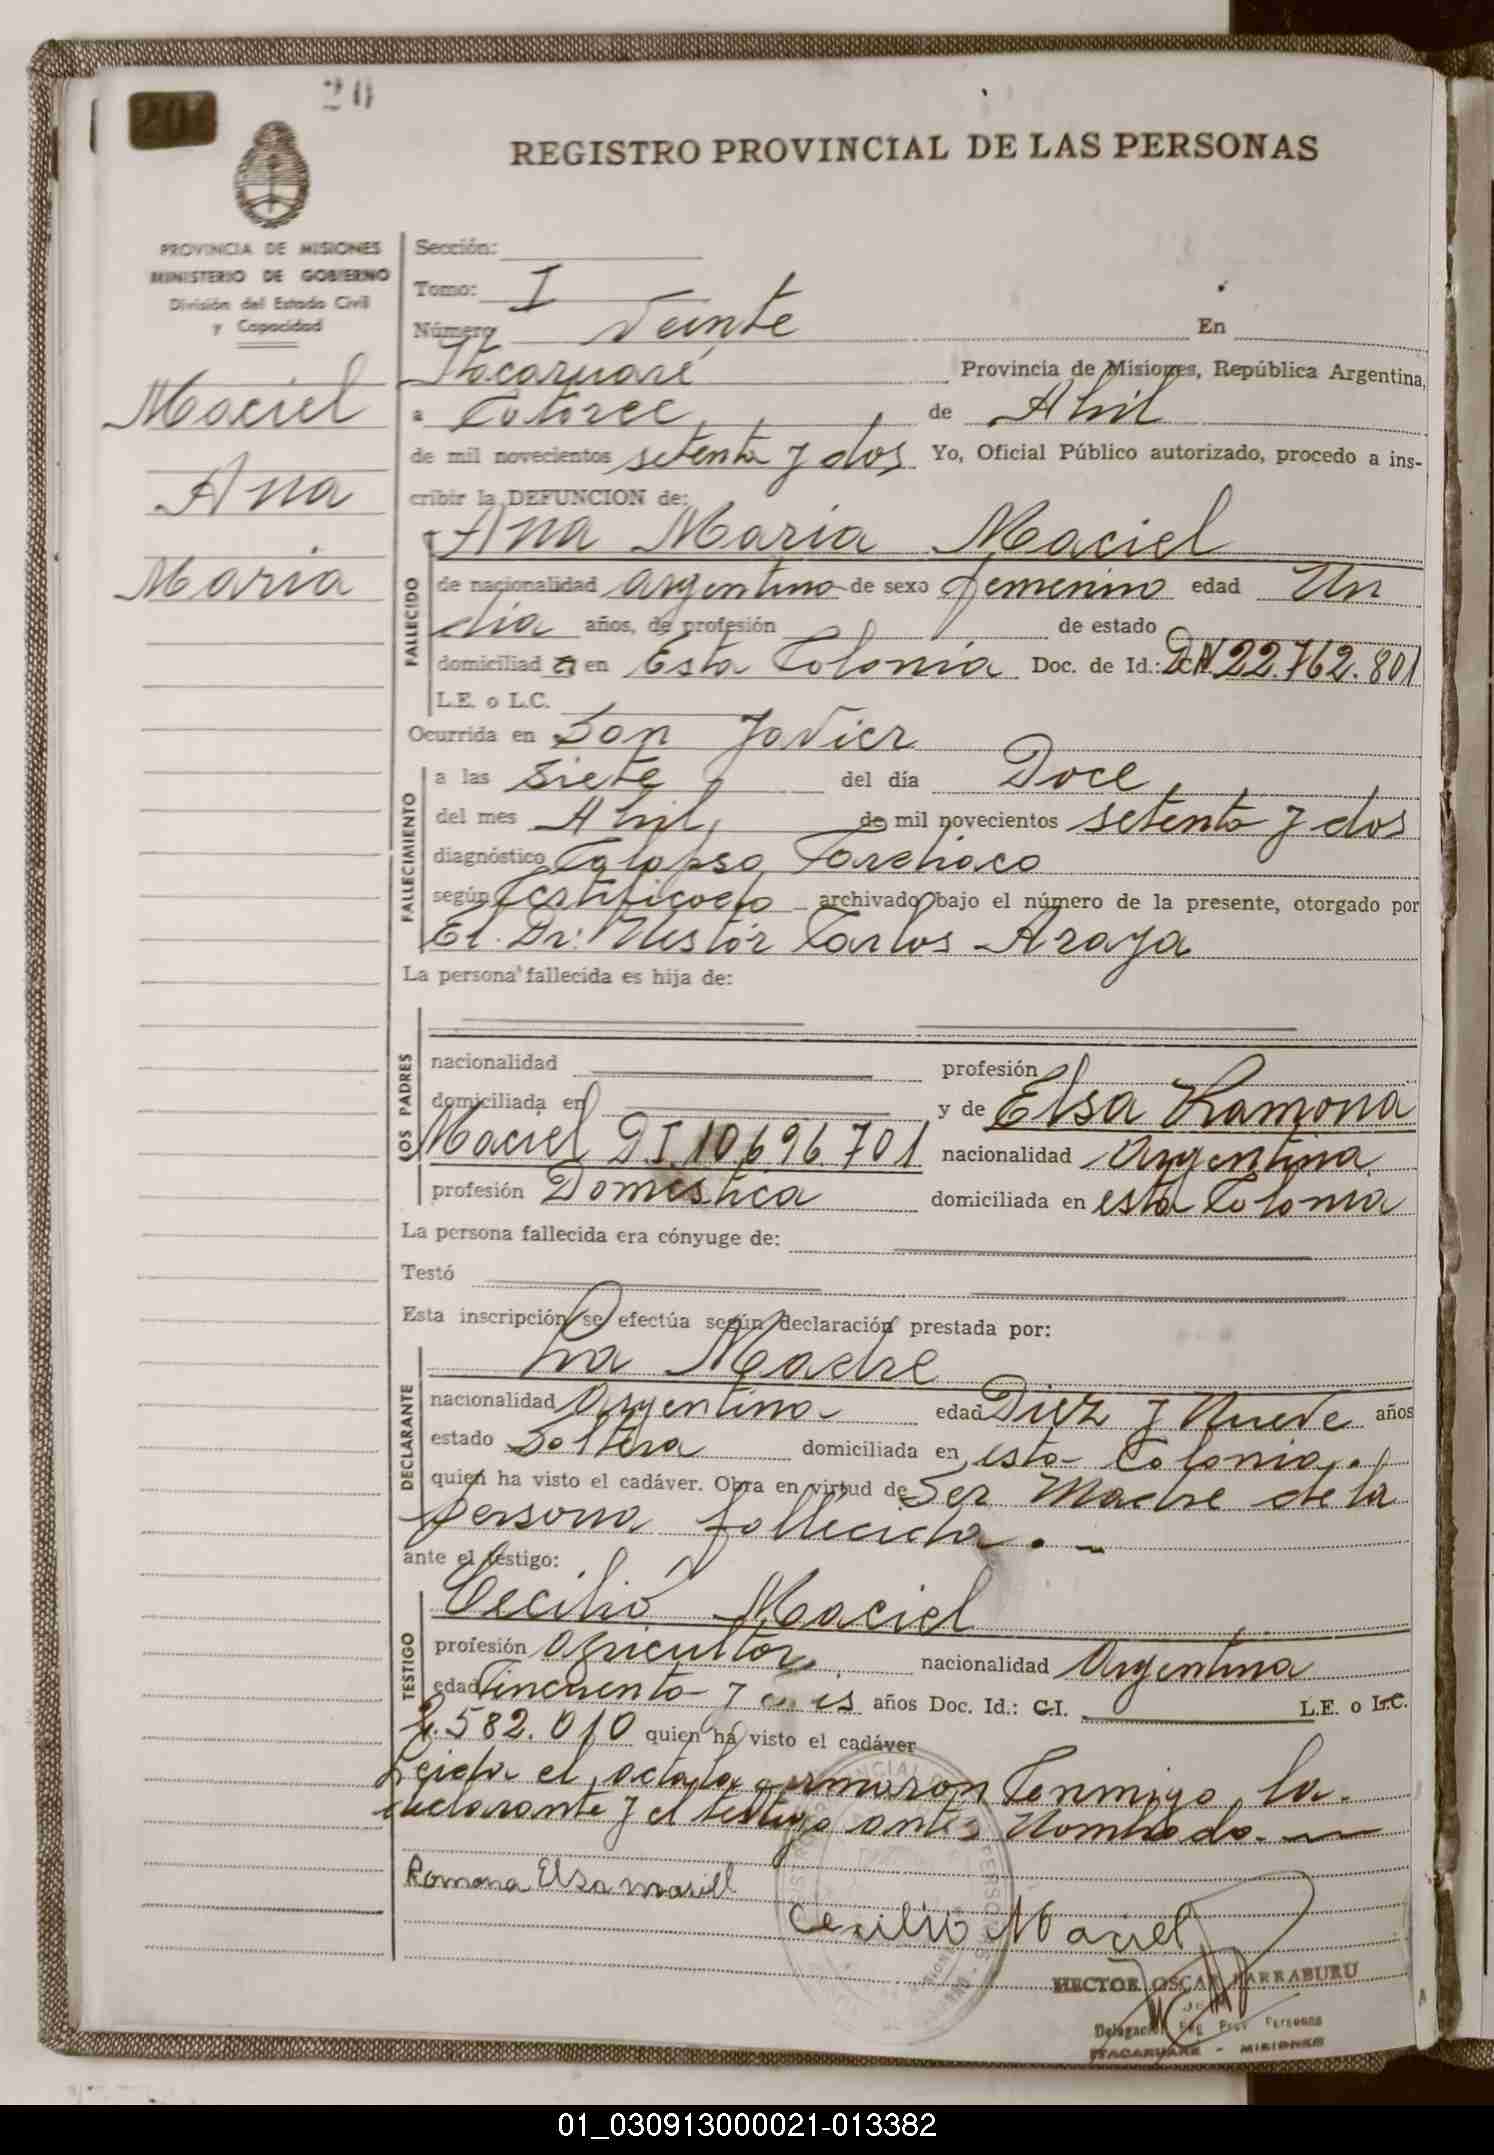 20
REGISTRO PROVINCIAL DE LAS PERSONAS
PROVINCIA DE MISIONES
MINISTERIO DE GOBIERNO
División del Estado Civil
y Capacidad
Maciel
Ana
Maria
Sección:
Tomo: I
Número Veinte En
Itacaruaré Provincia de Misiones, República Argentina,
a Catorce de Abril
de mil novecientos setenta y dos Yo, Oficial Público autorizado, procedo a ins-
cribir la DEFUNCION de:
Ana Maria Maciel
FALLECIDO
de nacionalidad argentina de sexo femenino edad Un
dia años, de profesión de estado
domiciliad a en Esta Colonia Doc. de Id.: 22.762.801
L.E. o L.C.
Ocurrida en San Javier
FALLECIMIENTO
a las siete del día Doce
del mes Abril, de mil novecientos setenta y dos
diagnóstico Colapso Cardiaco
según Certificado archivado bajo el número de la presente, otorgado por
El Dr: Nestor Carlos Araya
La persona fallecida es hija de:
LOS PADRES
nacionalidad profesión
domiciliada en y de Elsa Ramona
Maciel D.I. 10.696.701 nacionalidad Argentina
profesión Domestica domiciliada en esta Colonia
La persona fallecida era cónyuge de:
Testó
Esta inscripción se efectúa según declaración prestada por:
La Madre
DECLARANTE
nacionalidad Argentina edad Diez y Nueve años
estado Soltera domiciliada en esta Colonia.
quien ha visto el cadáver. Obra en virtud de Ser Madre de la
persona fallecida.
ante el testigo:
Cecilio Maciel
TESTIGO
profesión agricultor nacionalidad Argentina
edad Cincuenta y años Doc. Id.: C.I. L.E. o L.C.
582.010 quien ha visto el cadáver
Leida el acta la firmaron Conmigo, la
declarante y el testigo antes Nombrado.
Ramona Elsa masiel
Cecilio Maciel
HECTOR OSCAR LARRABURU
Delegación Reg Prov Personas
ITACARUARE - MISIONES
01_030913000021-013382